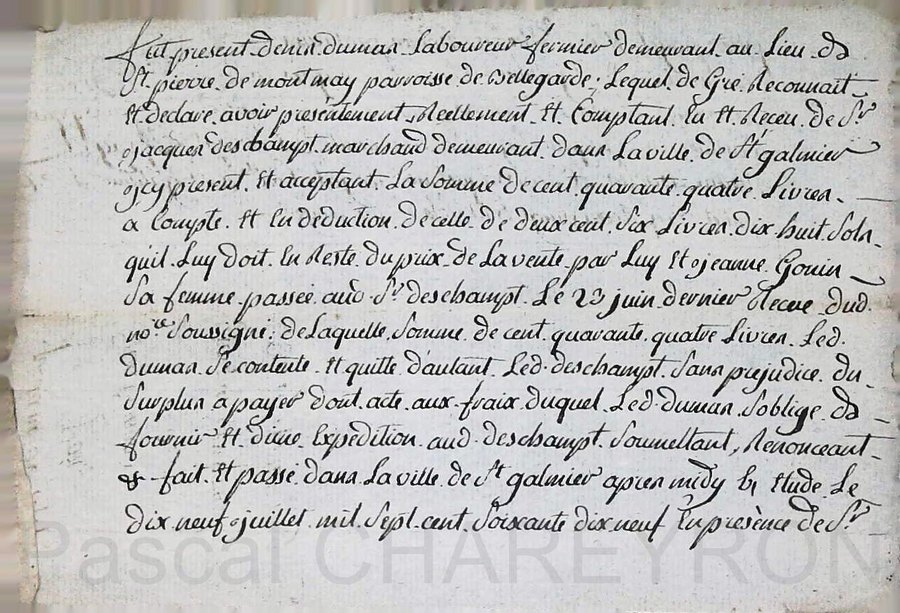 fut present denis dumas Laboureur fermier demeurant au Lieu de
St pierre de montmay parroisse de Bellegarde, Lequel de Gré Reconnait
Et declare avoir présentement Reellement Et Comptant Eu Et Receu de Sr
jacques deschampt marchand demeurant dans La ville de St galmier
jcy present Et acceptant La Somme de cent quarante quatre Livres
a Compte Et En deduction de celle de deux cent Six Livres dix huit Sols
quil Luy doit En Reste du prix de La vente par Luy Et jeanne Gouin
Sa femme passée aud Sr deschampt Le 23 juin dernier Recue dud
nore Soussigné, de Laquelle Somme de cent quarante quatre Livres Led
dumas Se contente Et quitte d'autant Led deschampt Sans prejudice du
Surplus a payer dont acte aux fraix duquel Led dumas Soblige de
fournir Et Expedition aud deschampt Soumettant, Renonceant
& fait Et passé dans La ville de St galmier apres midy Etude Le
dix neuf juillet mil Sept cent Soixante dix neuf En presence de Sr
Pascal CHAREYRON